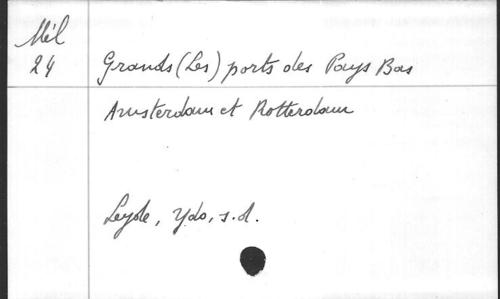 Mél
24
Grands (Les) ports des Pays Bas
Amsterdam et Rotterdam
Leyde, Ydo, s.d.